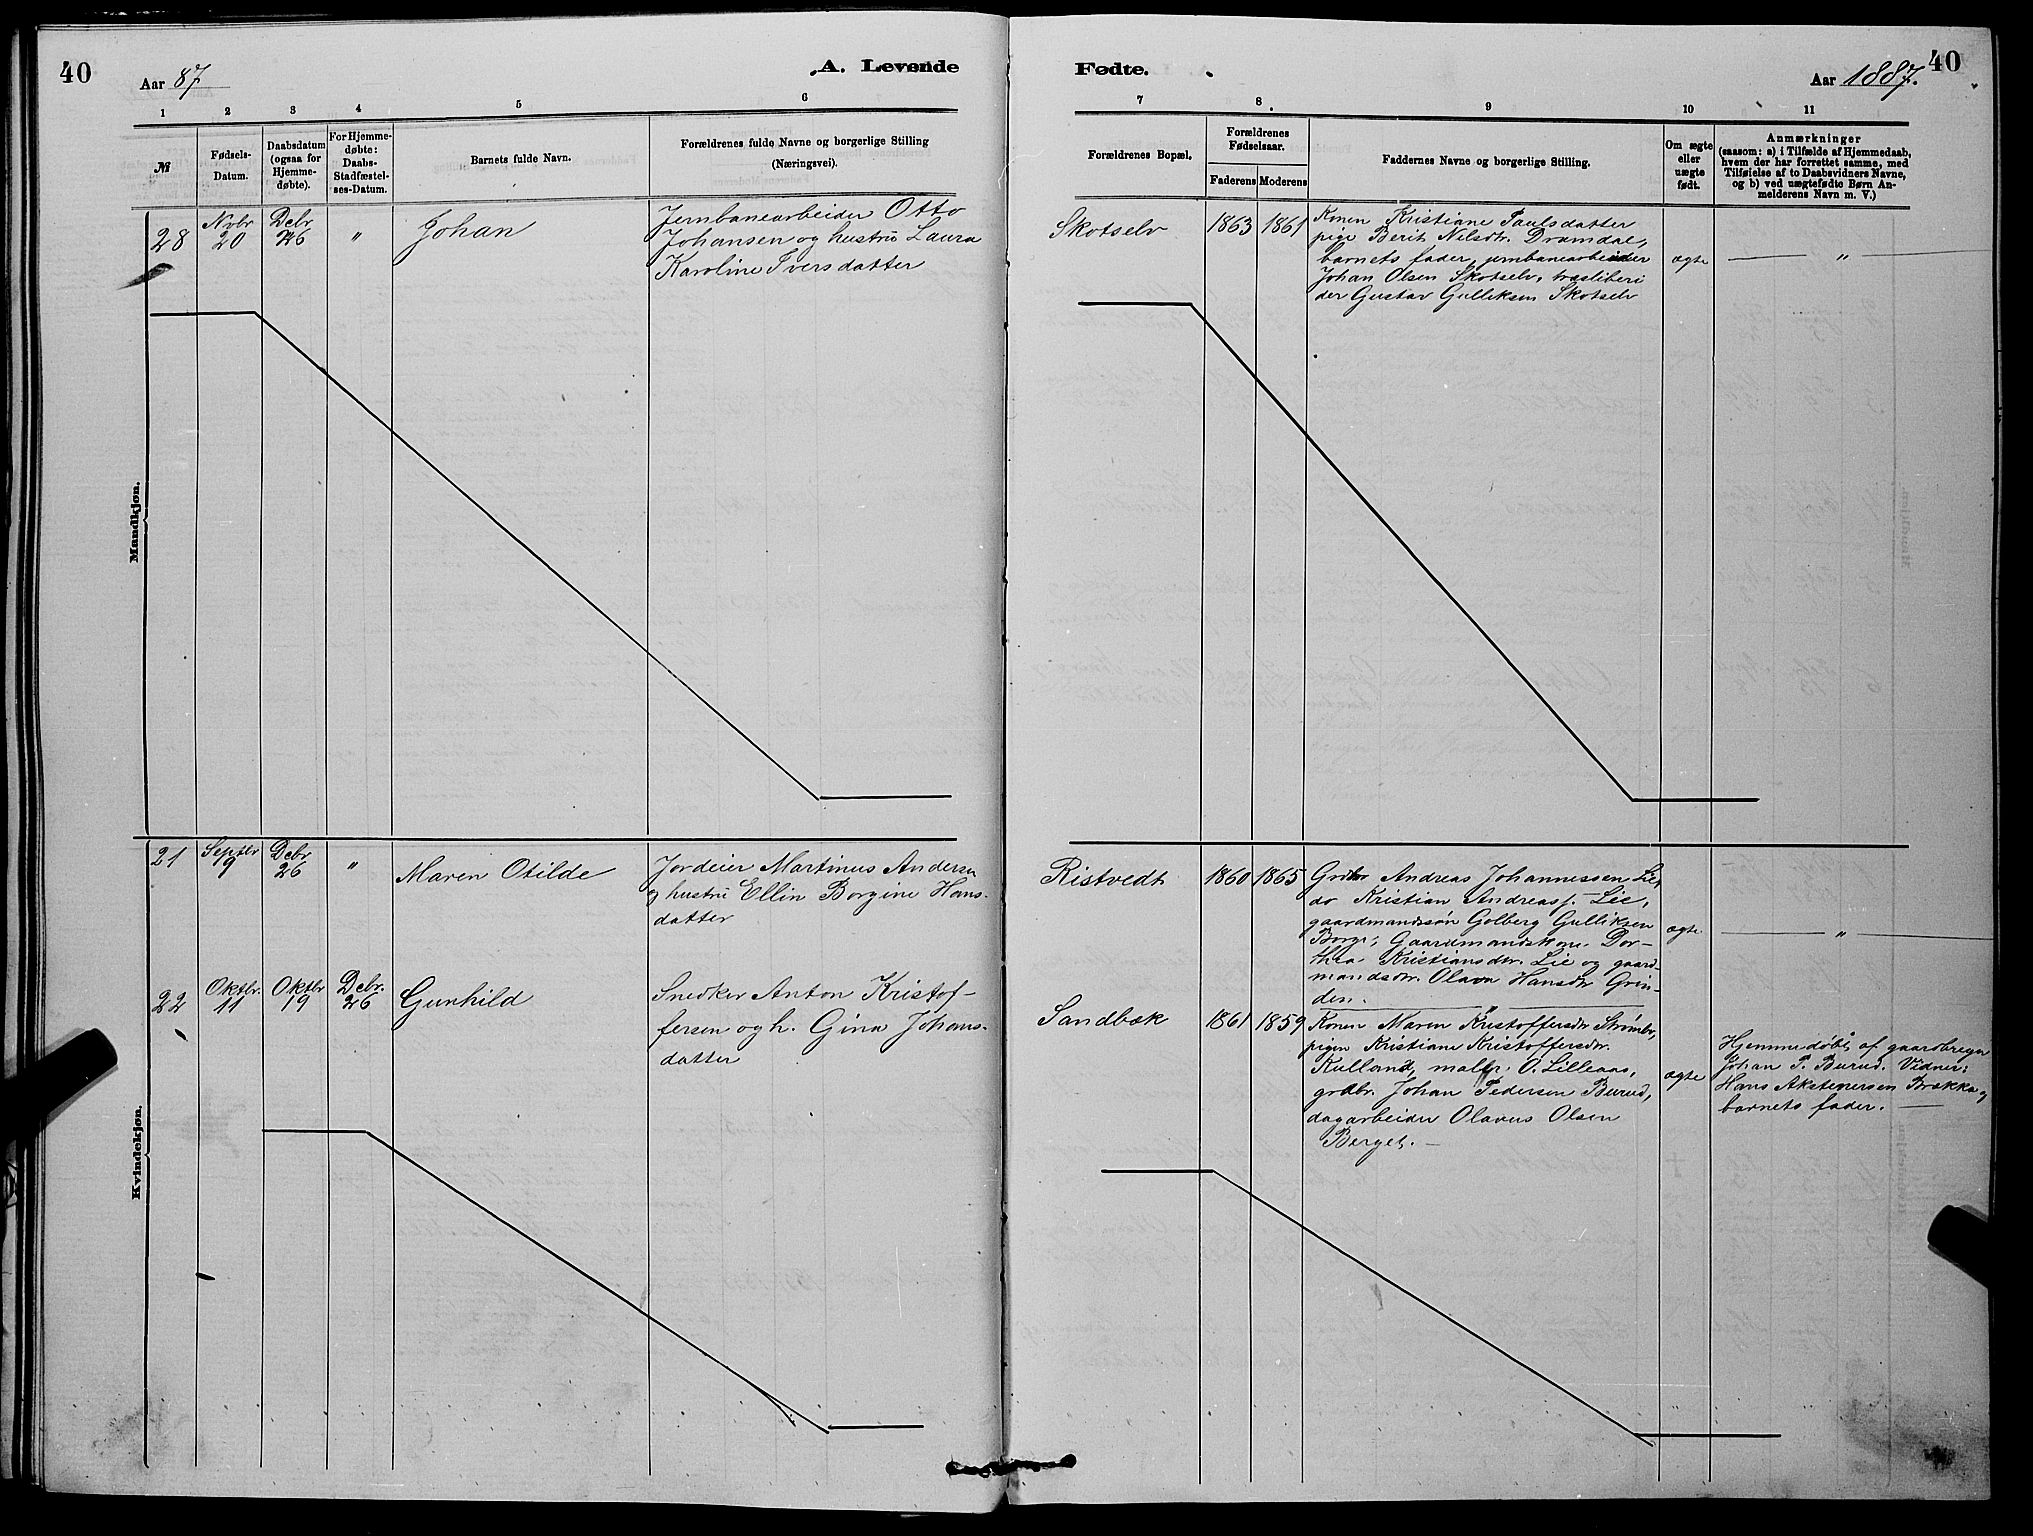 40
Aar 87
A. Levende
1 2 3 4 5 6
№
Fødsels-
Datum.
Daabsdatum
(ogsaa for
Hjemme-
døbte).
For Hjemme-
døbte:
Daabs-
Stadfæstel-
ses-Datum.
Barnets fulde Navn.
Forældrenes fulde Navne og borgerlige Stilling
(Næringsvei).
Mandkjøn.
28
Nvbr
20
Debr
26
"
Johan
Jernbanearbeider Otto
Johansen og hustru Laura
Karoline Iversdatter
Kvindekjøn.
21
Septbr
9
Debr
26
"
Maren Otilde
Jordeier Martinus Andersen
og hustru Ellin Borgine Hans-
datter
22
Oktbr.
11
Oktbr
19
Debr.
26
Gunhild
Snedker Anton Kristof-
fersen og h. Gina Johans-
datter
Fødte.
Aar 1887.
40
7 8. 9 10 11
Forældrenes Bopæl.
Forældrenes
Fødselsaar.
Faderens Moderens
Faddernes Navne og borgerlige Stilling.
Om ægte
eller
uægte
født.
Anmærkninger
(saasom: a) i Tilfælde af Hjemmedaab,
hvem der har forrettet samme, med
Tilføielse af to Daabsvidners Navne,
og b) ved uægtefødte Børn An-
melderens Navn m. V.)
Skotselv
1863
1861
Konen Kristiane Paulsdatter
pige Berit Nilsdtr. Dramdal,
barnets fader, jernbanearbeider
Johan Olsen Skotselv, træsliberi
der Gustav Gulliksen Skotselv
ægte
"
Ristvedt
1860
1865
Grdbr Andreas Johannessen Lie,
do Kristian Andreasf. Lie,
gaardmandssøn Golberg Gulliksen
Borge, Gaardmandskone Dor-
thea Kristiansdtr. Lie og gaard-
mandsdtr. Olava Hansdtr Grin-
den.
ægte
"
Sandbæk
1861
1859
Konen Maren Kristoffersdtr Strømbo,
pigen Kristiane Kristoffersdtr.
Kulland, maler O. Lilleaas,
grdbr. Johan Pedersen Burud,
dagarbeider Olavus Olsen
Berget.
ægte
Hjemmedøbt af gaardbruger
Johan P. Burud. Vidner:
Hans Akstensen Brekka og
barnets fader.